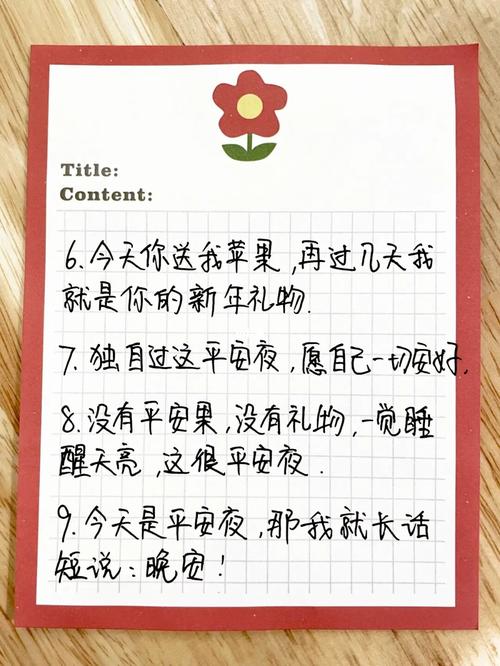 Title:
Content:
6.今天你送我苹果,再过几天我
就是你的新年礼物.
7.独自过这平安夜,愿自己一切安好.
8.没有平安果,没有礼物,一觉睡
醒天亮,这很平安夜.
9.今天是平安夜,那我就长话
短说:晚安!